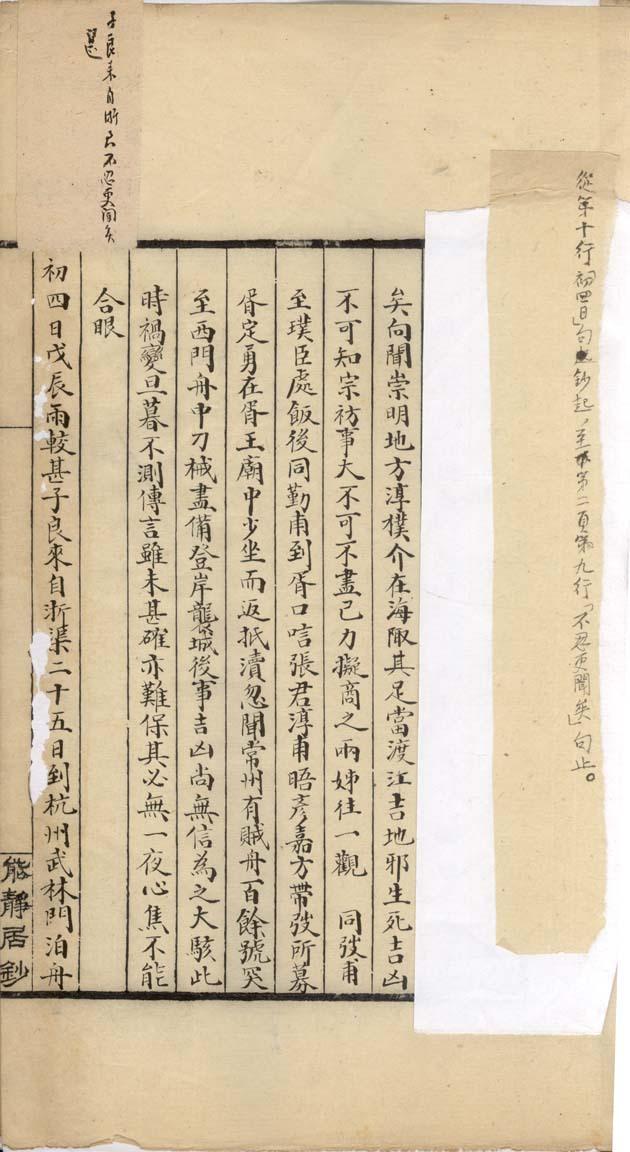 從第十行「初四日」句鈔起，至第二頁第九行「不忍更聞矣」句止。
矣向聞崇明地方淳樸介在海陬其足當渡江吉地邪生死吉凶
不可知宗祊事大不可不盡己力擬商之兩姊往一觀　同弢甫
至璞臣處飯後同勤甫到胥口唁張君淳甫晤彥嘉方帶弢所募
胥定勇在胥王廟中少坐而返抵瀆忽聞常州有賊舟百餘號突
至西門舟中刀械盡備登岸襲城後事吉凶尚無信為之大駭此
時禍變旦暮不測傳言雖未甚確亦難保其必無一夜心焦不能
合眼
初四日戊辰雨較甚子良來自浙渠二十五日到杭州武林門泊舟
能靜居鈔
子良來自浙
不忍更聞矣